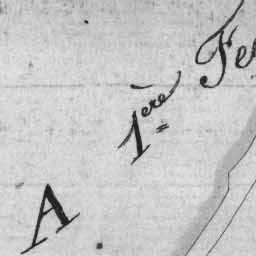 A 1ère Fe